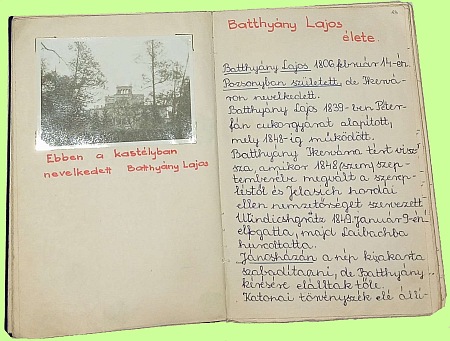 Ebben a kastélyban
nevelkedett Batthyány Lajos
Batthyány Lajos
élete.
Batthyány Lajos 1806 február 14-én
Pozsonyban született, de Ikervá-
ron nevelkedett.
Batthyány Lajos 1839-ben Péter-
fán cukorgyárat alapított,
mely 1848-ig működött.
Batthyány Ikervárra tért visz-
sza, amikor 1848 szep-
temberébe megvált a szerep-
léstől és Jelasich hordái
ellen nemzetőrséget szervezett
Windischgrätz 1849. január 9-én
elfogatta, majd Laibachba
hurcoltatta.
Jánosházán a nép ki akarta
szabadítani, de Batthyány
kérésére elálltak tőle.
Katonai törvényszék elé állí-